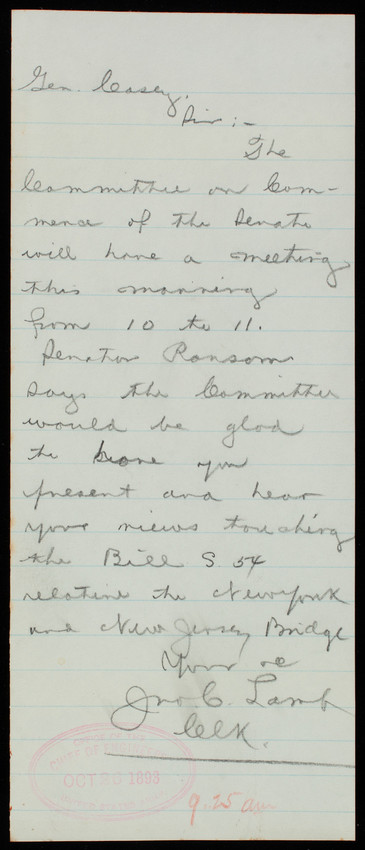 Gen. Casey,
Sir :-
The
Committee on Com-
merce of the Senate
will have a meeting
this morning
from 10 to 11.
Senator Ransom
says the Committee
would be glad
to have you
present and hear
your views touching
the Bill S. 54
relative to New york
and New Jersey Bridge
Yours &c
Jno. C. Lamb
Clk.
OFFICE OF THE
CHIEF OF ENGINEERS
OCT 26 1893
UNITED STATES ARMY
9.25 am